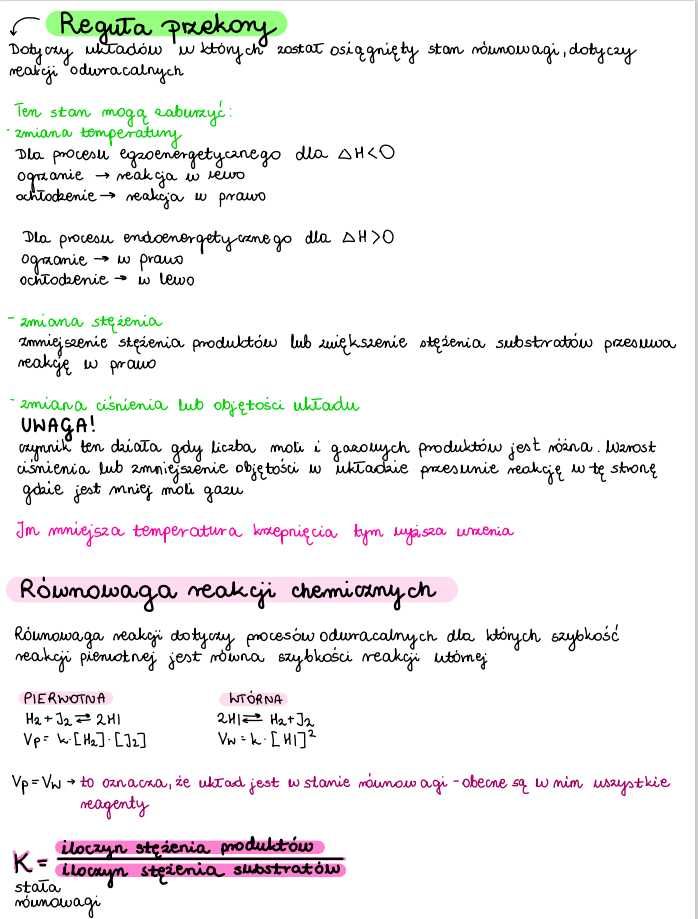 Reguła przekory
Dotyczy układów w których został osiągnięty stan równowagi, dotyczy
reakcji odwracalnych
Ten stan mogą zaburzyć:
- zmiana temperatury
Dla procesu egzoenergetycznego dla ΔH<0
ogrzanie → reakcja w lewo
ochłodzenie → reakcja w prawo
Dla procesu endoenergetycznego dla ΔH>0
ogrzanie → w prawo
ochłodzenie → w lewo
- zmiana stężenia
zmniejszenie stężenia produktów lub zwiększenie stężenia substratów przesuwa
reakcję w prawo
- zmiana ciśnienia lub objętości układu
UWAGA!
czynnik ten działa gdy liczba moli i gazowych produktów jest różna. Wzrost
ciśnienia lub zmniejszenie objętości w układzie przesunie reakcję w tę stronę
gdzie jest mniej moli gazu
Im mniejsza temperatura krzepnięcia tym wyższa wrzenia
Równowaga reakcji chemicznych
Równowaga reakcji dotyczy procesów odwracalnych dla których szybkość
reakcji pierwotnej jest równa szybkości reakcji wtórnej
PIERWOTNA WTÓRNA
H₂ + J₂ ⇄ 2HI 2HI ⇄ H₂ + J₂
Vp = k · [H₂] · [J₂] Vw = k · [HI]²
Vp = Vw → to oznacza, że układ jest w stanie równowagi - obecne są w nim wszystkie
reagenty
K = iloczyn stężenia produktów
iloczyn stężenia substratów
stała
równowagi